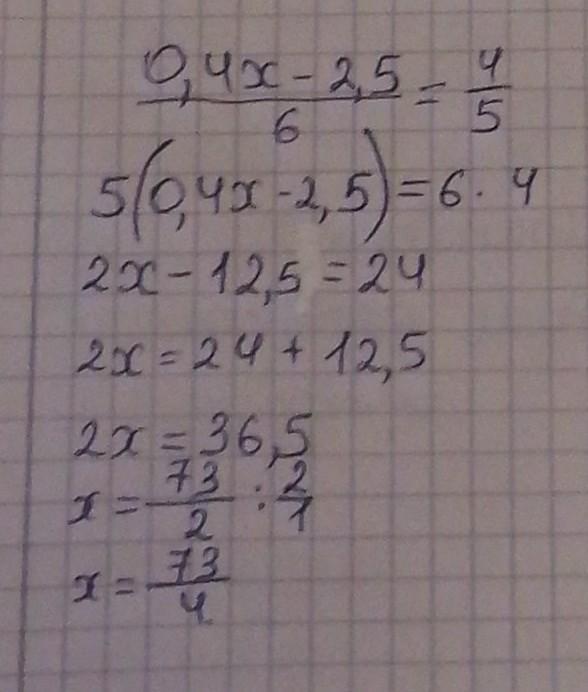 (0,4x - 2,5)/6 = 4/5
5(0,4x - 2,5) = 6 · 4
2x - 12,5 = 24
2x = 24 + 12,5
2x = 36,5
x = 73/2 : 2/1
x = 73/4